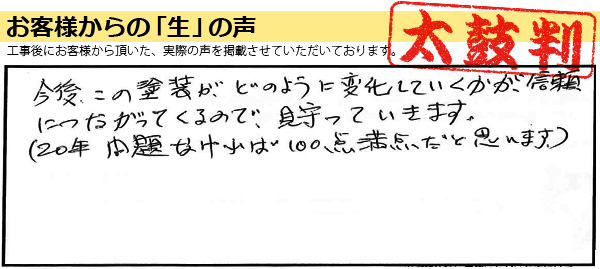 お客様からの「生」の声
工事後にお客様から頂いた、実際の声を掲載させていただいております。
太鼓判
今後、この塗装が、どのように変化していくかが信頼
につながってくるので、見守っていきます。
(20年 問題なければ100点満点だと思います)